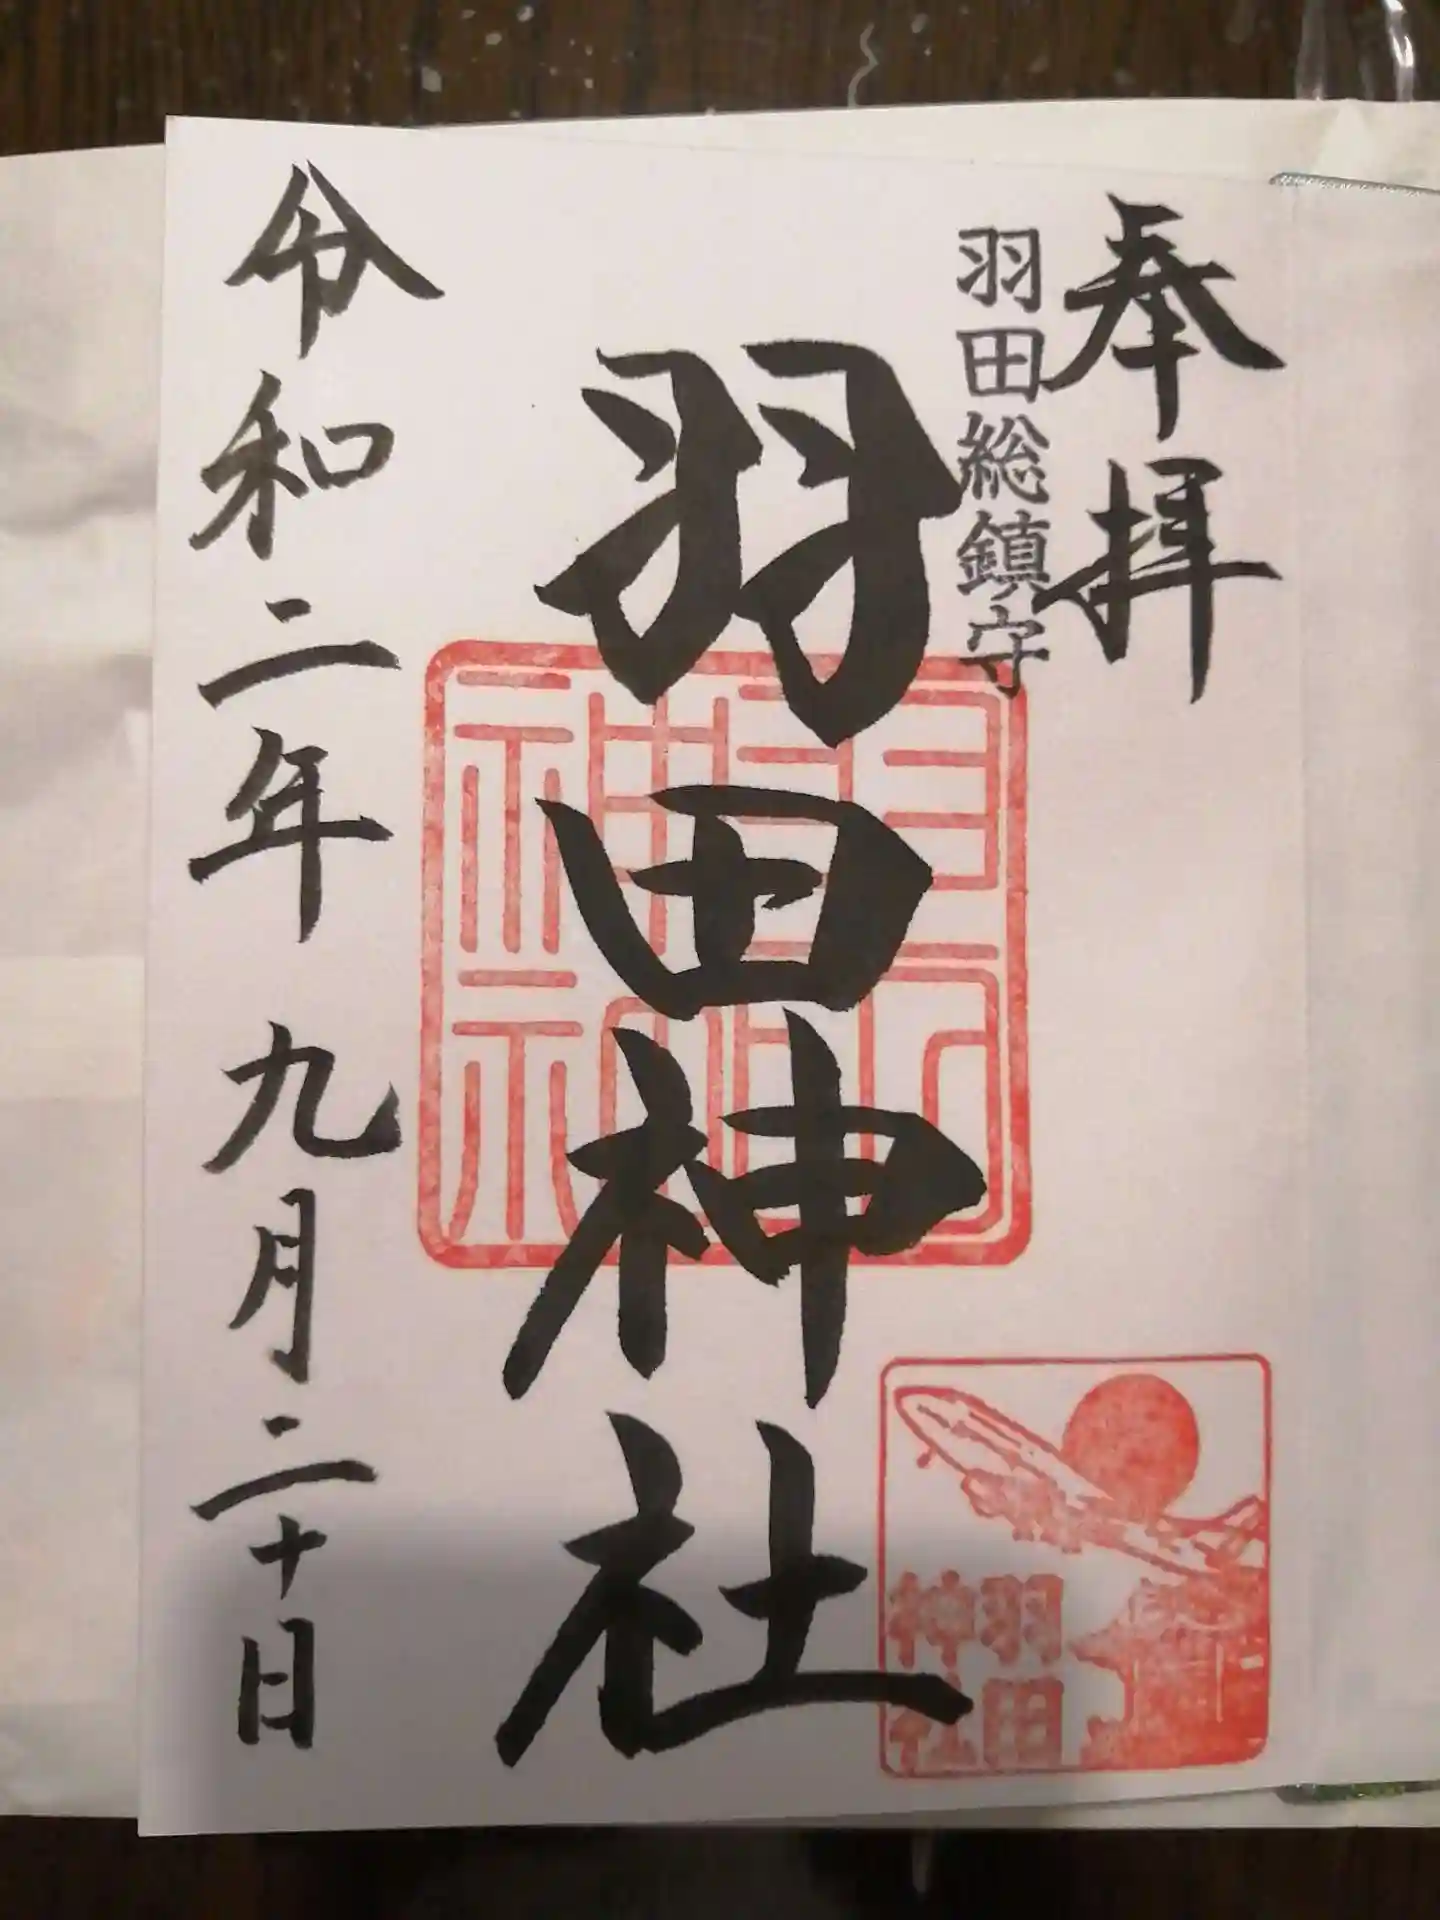 奉拝
羽田総鎮守
羽田神社
令和二年 九月二十日
羽田
神社